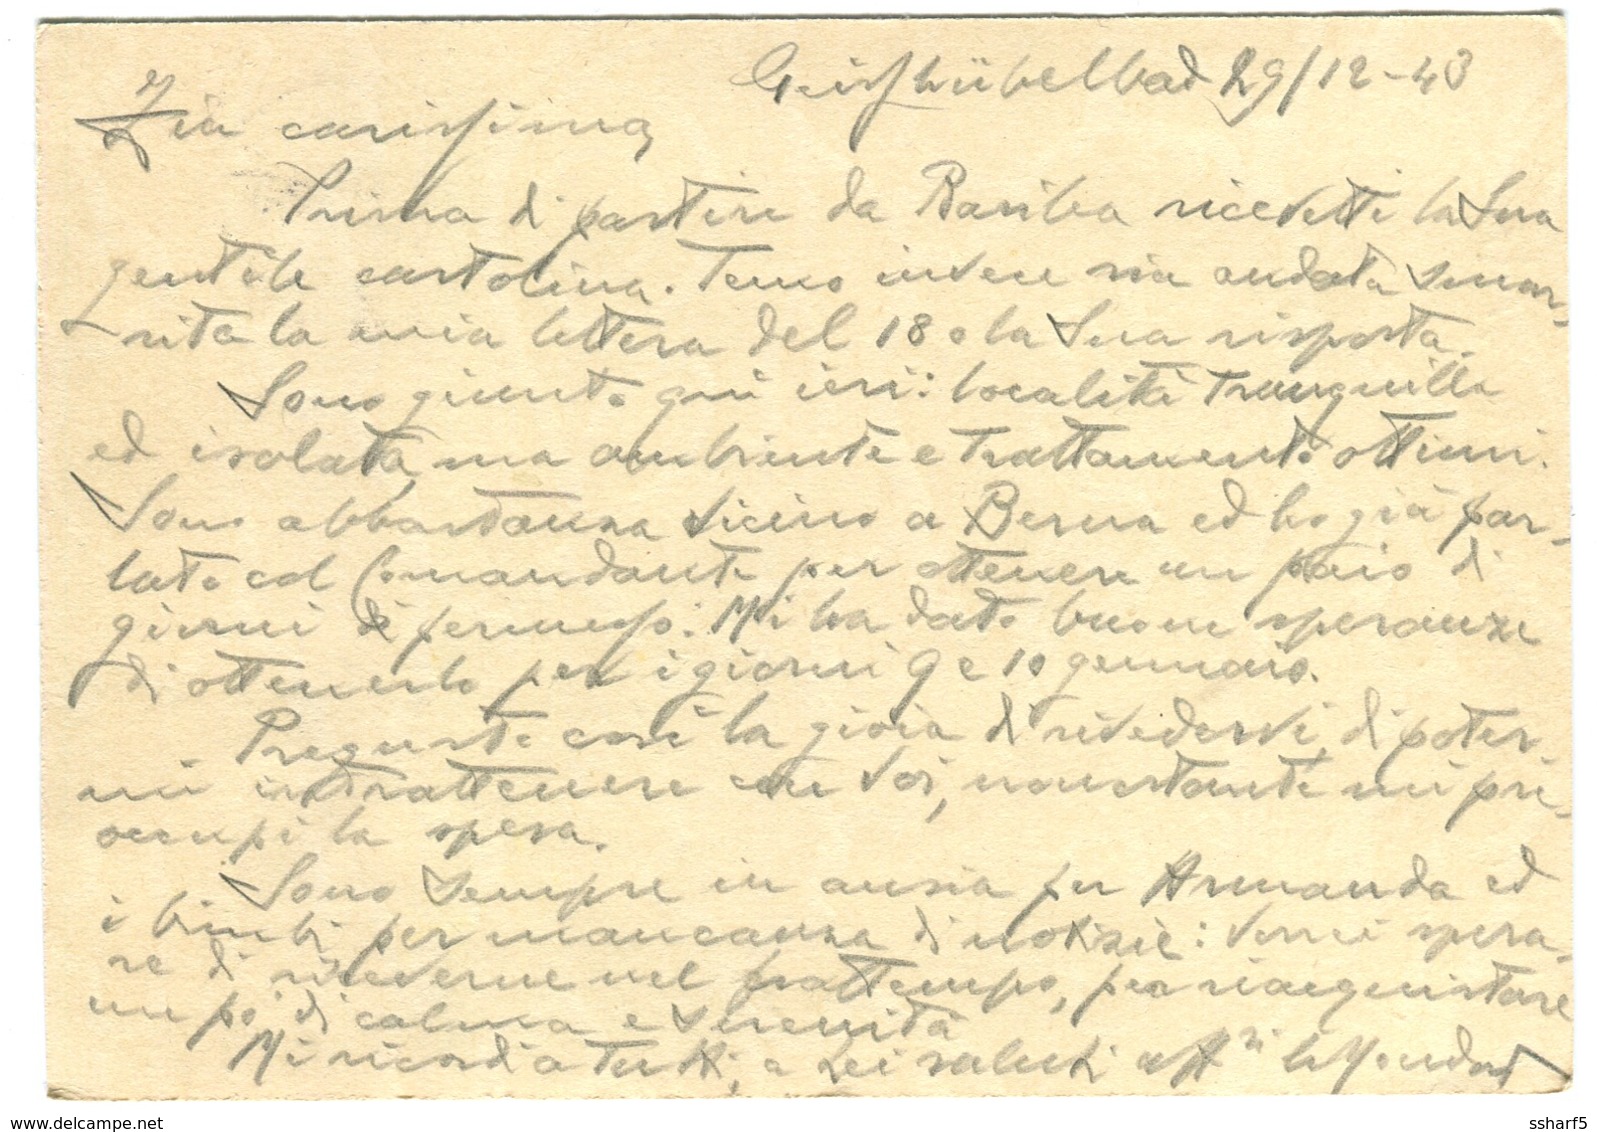 Geissshübelbad 29/12-43
Zia carissima,
Prima di partire da Bariba ricevetti la Sua
gentile cartolina. Temo invece sia andata smar-
rita la mia lettera del 18 o la Sua risposta.
Sono giunto qui ieri: località tranquilla
ed isolata, ma ambiente e trattamento ottimi.
Sono abbastanza vicino a Berna ed ho già par-
lato col Comandante per ottenere un paio di
giorni di permesso. Mi ha dato buone speranze
di ottenerlo per i giorni 9 e 10 gennaio.
Pregusto così la gioia di rivedervi, di poter-
mi intrattenere con voi, nonostante mi pre-
occupi la spesa.
Sono sempre in ansia per Armanda ed
i bimbi per mancanza di notizie: vorrei spera-
re di riceverne nel frattempo, per riacquistare
un po' di calma e serenità
Mi ricordi a tutti, a Lei saluti aff.ni
www.delcampe.net
ssharf5